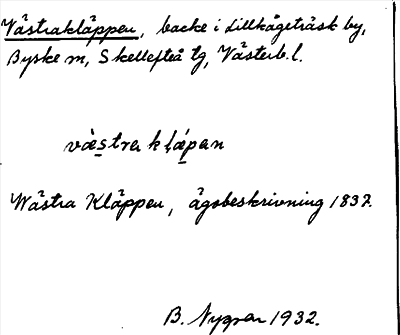 Västrakläppen, backe i Lillkågeträsk by,
Byske sn, Skellefteå tg, Västerb. l.
væ̀stra kḷǽpan
Wästra Kläppen, ägobeskrivning 1837.
B. 1932.